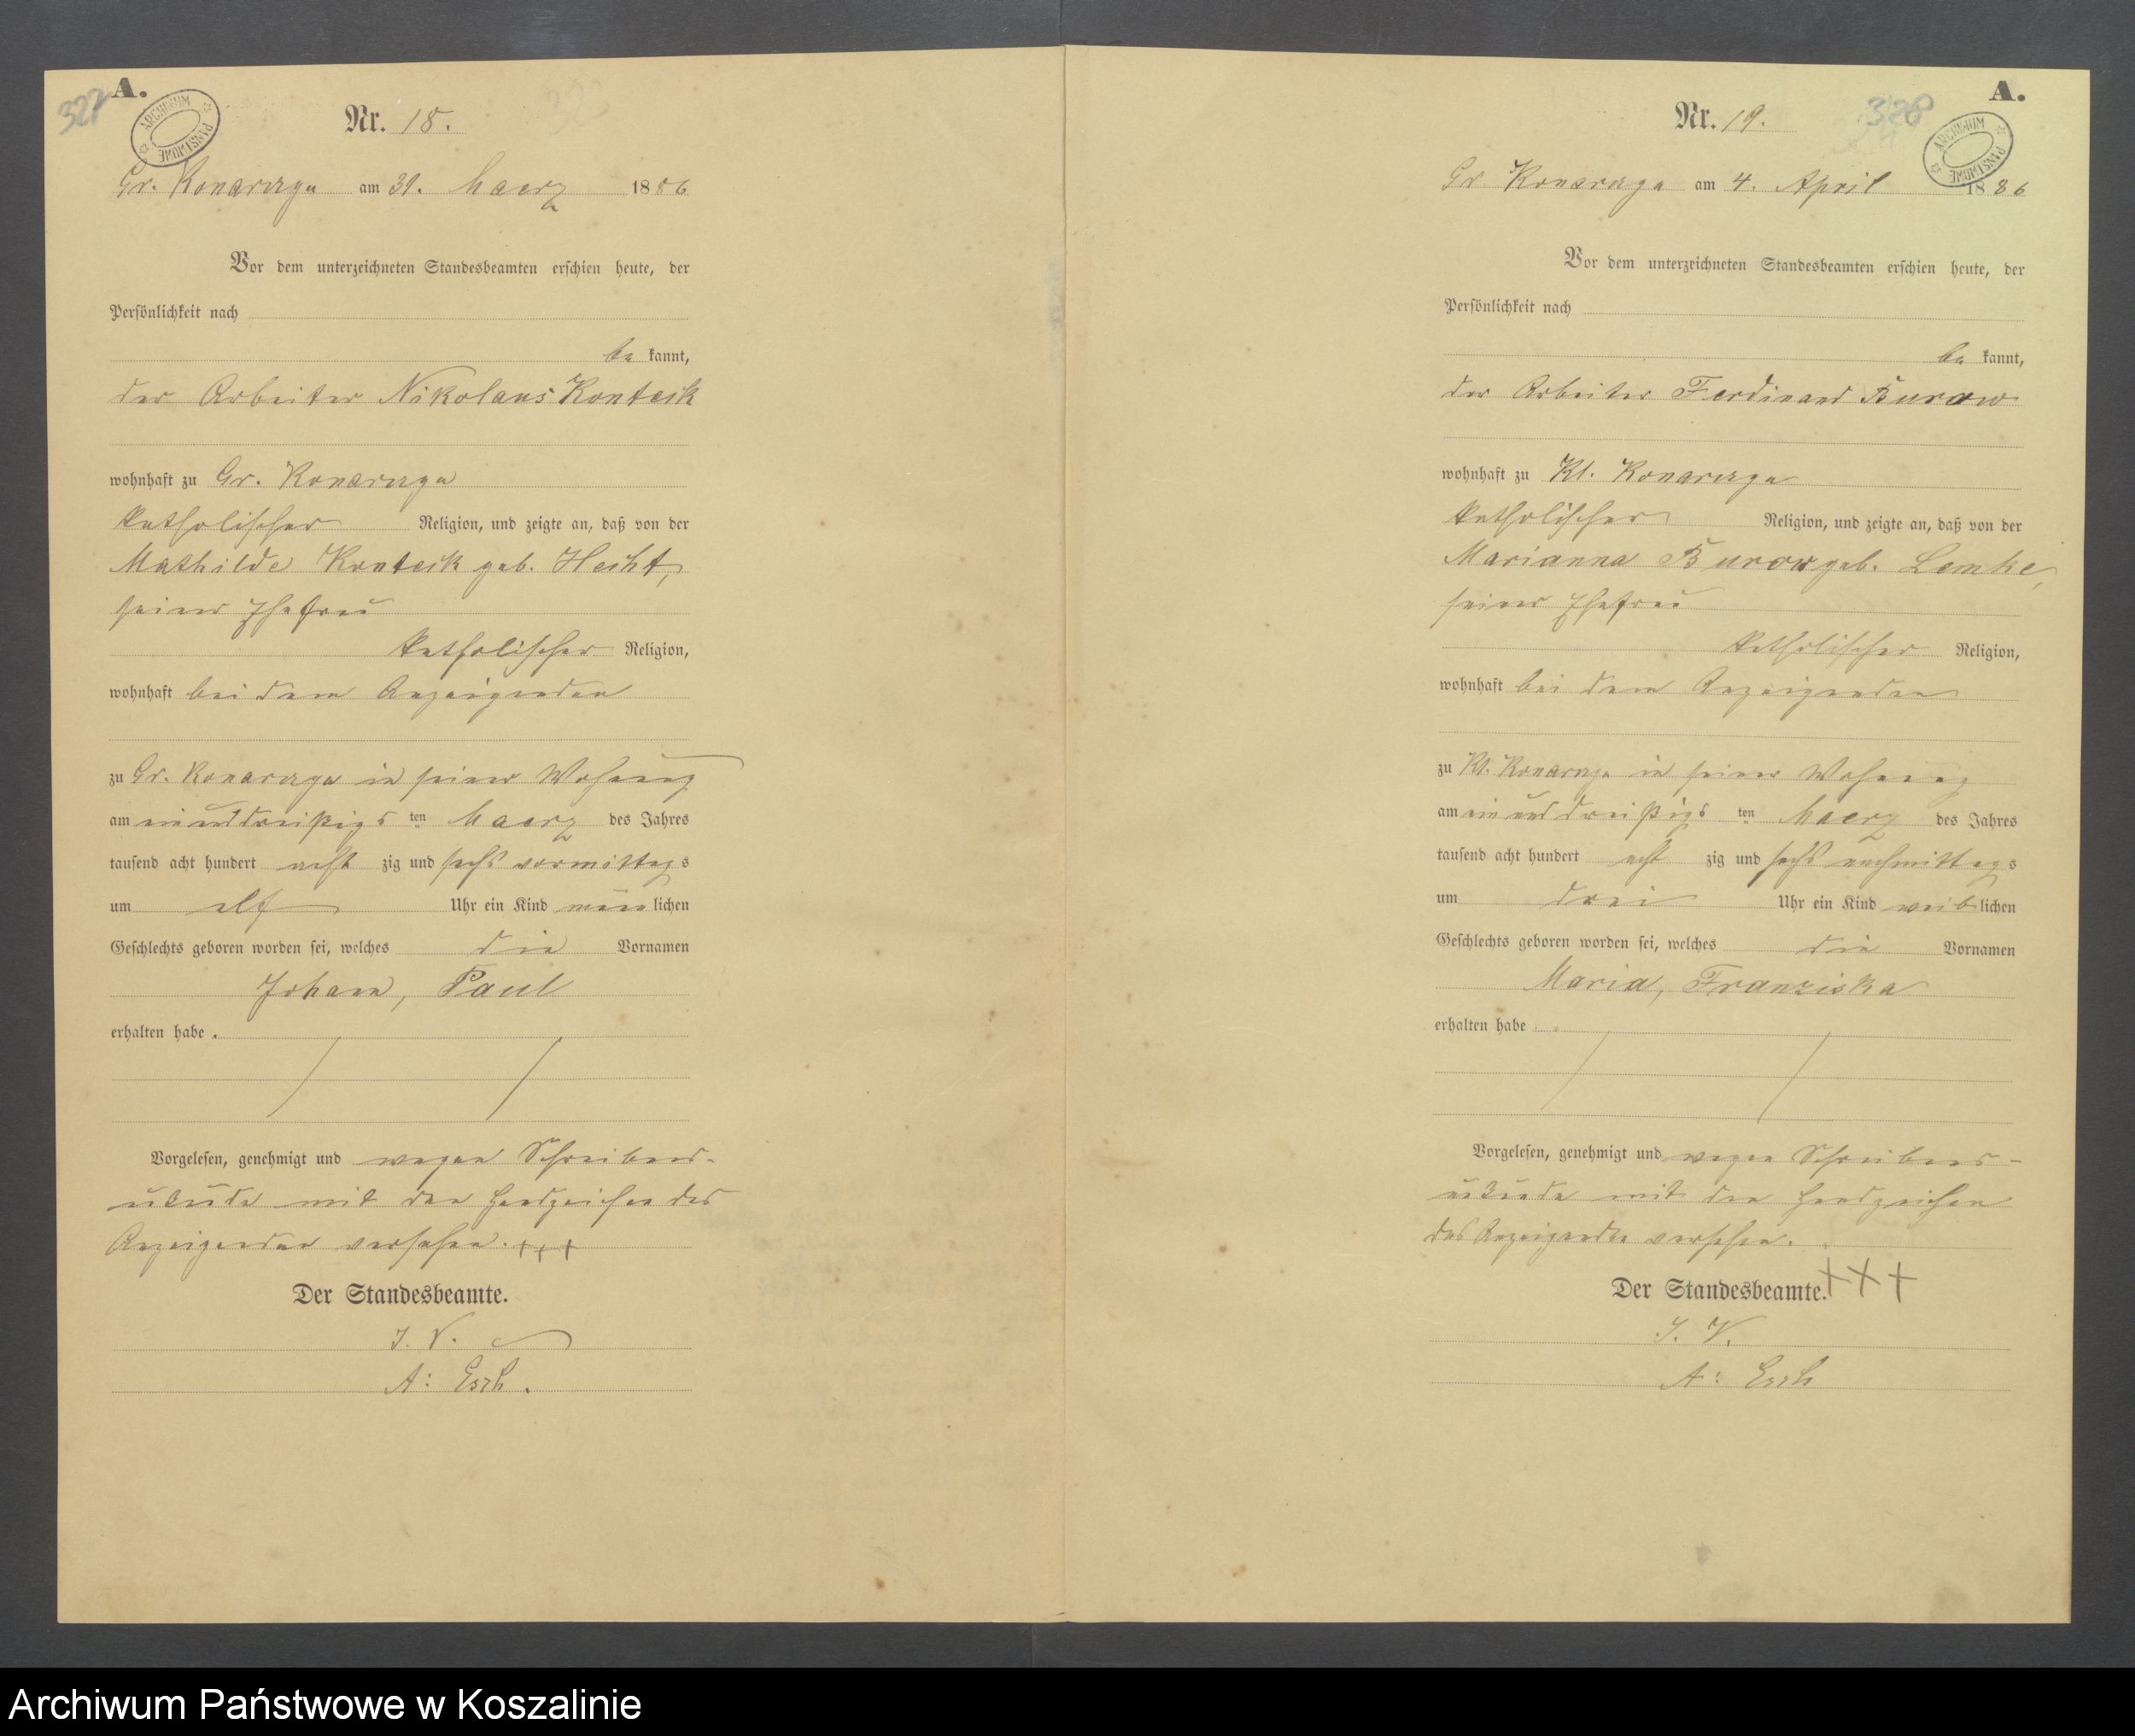 A.
327
ARCHIWUM PAŃSTWOWE
Nr. 18.
Gr. Konarczyn am 31. Maerz 1886
Vor dem unterzeichneten Standesbeamten erschien heute, der
Persönlichkeit nach
be kannt,
der Arbeiter Nikolaus Konteck
wohnhaft zu Gr. Konarczyn
katholischer Religion, und zeigte an, daß von der
Mathilde Konteck geb. Hecht,
seiner Ehefrau
katholischer Religion,
wohnhaft bei dem Anzeigenden
zu Gr. Konarczyn in seiner Wohnung
am einunddreißigs ten Maerz des Jahres
tausend acht hundert acht zig und sechs vormittags
um elf Uhr ein Kind männlichen
Geschlechts geboren worden sei, welches die Vornamen
Johann, Paul
erhalten habe.
Vorgelesen, genehmigt und wegen Schreibens-
unkunde mit den Handzeichen des
Anzeigenden versehen. +++
Der Standesbeamte.
I. V.
A: Esch.
A.
328
ARCHIWUM PAŃSTWOWE
Nr. 19.
Gr Konarczyn am 4. April 1886
Vor dem unterzeichneten Standesbeamten erschien heute, der
Persönlichkeit nach
be kannt,
der Arbeiter Ferdinand Burow
wohnhaft zu Kl. Konarczyn
katholischer Religion, und zeigte an, daß von der
Marianna Burow geb. Lemke,
seiner Ehefrau
katholischer Religion,
wohnhaft bei dem Anzeigenden
zu Kl. Konarczyn in seiner Wohnung
am einunddreißigs ten Maerz des Jahres
tausend acht hundert acht zig und sechs nachmittags
um drei Uhr ein Kind weiblichen
Geschlechts geboren worden sei, welches die Vornamen
Maria, Franziska
erhalten habe
Vorgelesen, genehmigt und wegen Schreibens-
unkunde mit den Handzeichen
des Anzeigenden versehen.
Der Standesbeamte. +++
I. V.
A: Esch
Archiwum Państwowe w Koszalinie